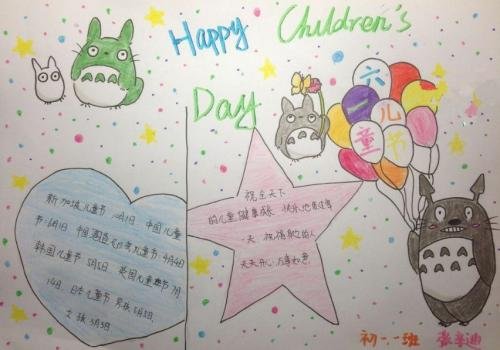 Happy Children's
Day
六
一 儿
童 节
新加坡儿童节 10月1日 中国儿童
节6月1日 中国 儿童节 4月4日
韩国儿童节 5月5日 英国儿童节 7月
14日, 日本儿童节 男孩5月5日,
女孩3月3日
祝全天下
的儿童健康成长 快乐地度过
一天 祝福 的人
天天开心 万事如意
初一一班